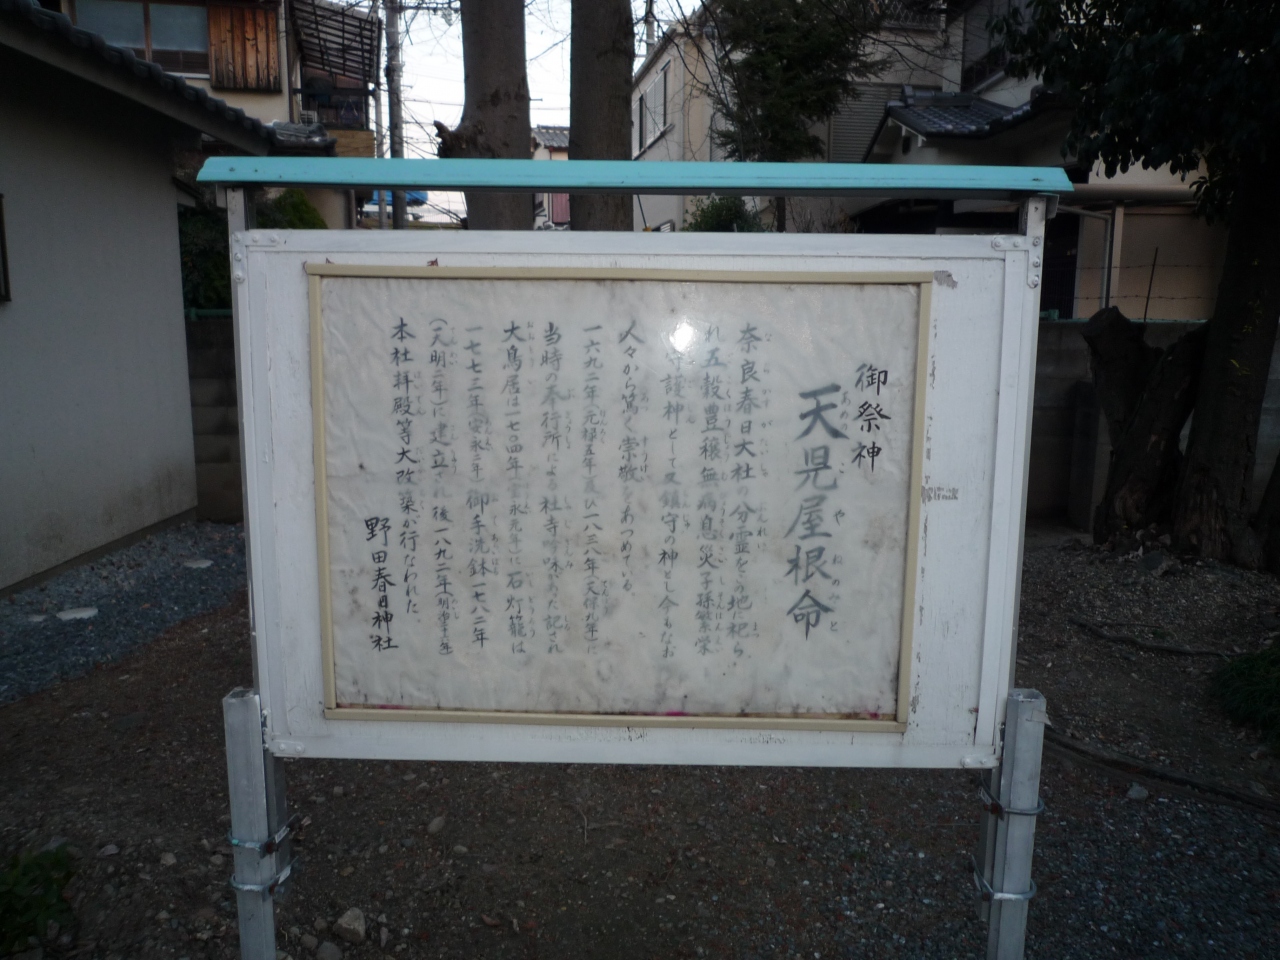 御祭神
天児屋根命
あめの こ や ねのみ と
奈良春日大社の分霊をこの地に祀ら
れ五穀豊穣無病息災子孫繁栄
守護神として又鎮守の神とし今もなお
人々から篤く崇敬をあつめている。
一六九二年(元禄五年)及び一八三八年(天保九年)に
当時の奉行所による社寺吟味があった記され
大鳥居は一七〇四年(宝永元年)に石灯籠は
一七七三年(安永二年)御手洗鉢一七八二年
(天明二年)に建立され後一八九二年(明治二十五年
本社拝殿等大改築が行なわれた。
野田春日神社